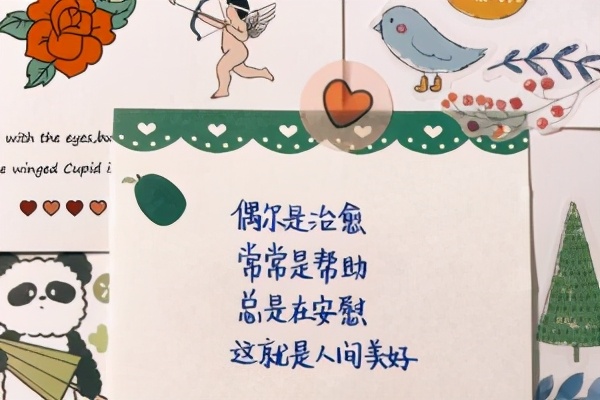 with the eyes, bu
e winged Cupid i
偶尔是治愈
常常是帮助
总是在安慰
这就是人间美好